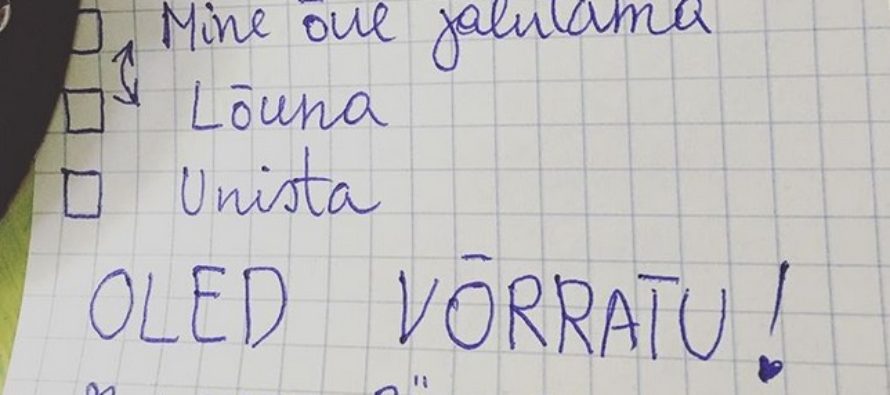 Mine õue jalutama
Lõuna
Unista
OLED VÕRRATU!